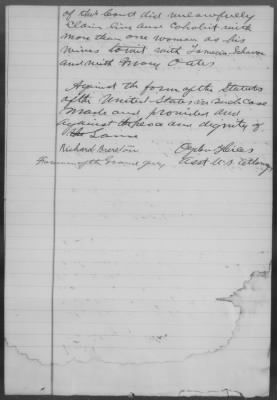 of this Court did unlawfully
Claim live and Cohabit with
more than one woman as his
wives to wit with
and with Mary Oates
Against the form of the Statute
of the United States in such case
Made and provided and
against the peace and dignity of
the Same
Richard Brereton
Foreman of the Grand Jury
Ogden Hiles
Asst U.S. Attorney